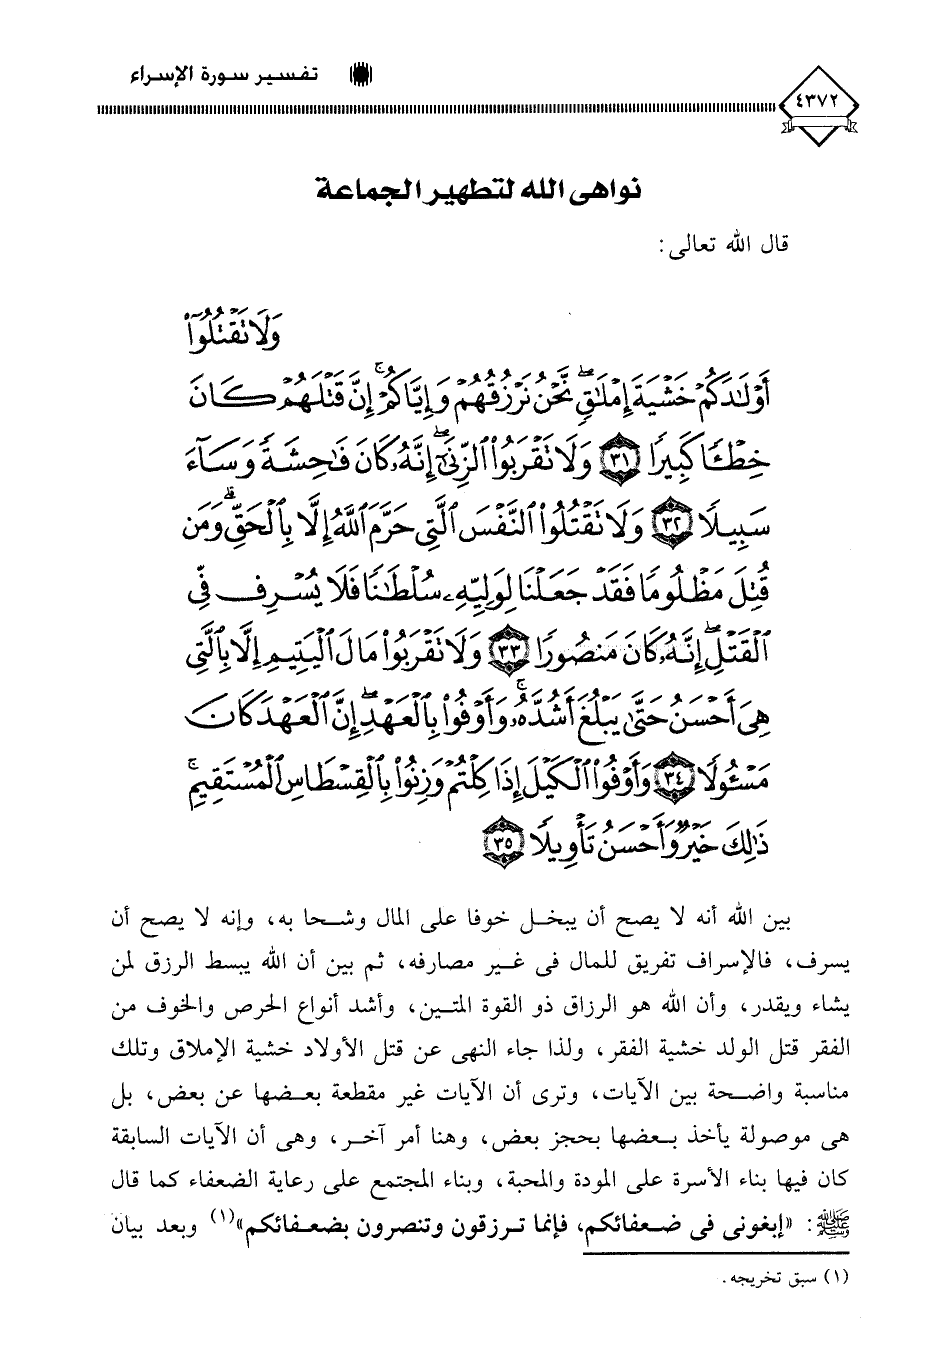 تفسير سورة الإسراء
٤٣٧٢
نواهى الله لتطهير الجماعة
قال الله تعالى:
وَلَا تَقْتُلُوٓا۟
أَوْلَـٰدَكُمْ خَشْيَةَ إِمْلَـٰقٍۖ نَّحْنُ نَرْزُقُهُمْ وَإِيَّاكُمْۚ إِنَّ قَتْلَهُمْ كَانَ
خِطْـًٔا كَبِيرًا ٣١ وَلَا تَقْرَبُوا۟ ٱلزِّنَىٰٓۖ إِنَّهُۥ كَانَ فَـٰحِشَةً وَسَآءَ
سَبِيلًا ٣٢ وَلَا تَقْتُلُوا۟ ٱلنَّفْسَ ٱلَّتِى حَرَّمَ ٱللَّهُ إِلَّا بِٱلْحَقِّۗ وَمَن
قُتِلَ مَظْلُومًا فَقَدْ جَعَلْنَا لِوَلِيِّهِۦ سُلْطَـٰنًا فَلَا يُسْرِف فِّى
ٱلْقَتْلِۖ إِنَّهُۥ كَانَ مَنصُورًا ٣٣ وَلَا تَقْرَبُوا۟ مَالَ ٱلْيَتِيمِ إِلَّا بِٱلَّتِى
هِىَ أَحْسَنُ حَتَّىٰ يَبْلُغَ أَشُدَّهُۥۚ وَأَوْفُوا۟ بِٱلْعَهْدِۖ إِنَّ ٱلْعَهْدَ كَانَ
مَسْـُٔولًا ٣٤ وَأَوْفُوا۟ ٱلْكَيْلَ إِذَا كِلْتُمْ وَزِنُوا۟ بِٱلْقِسْطَاسِ ٱلْمُسْتَقِيمِۚ
ذَٰلِكَ خَيْرٌ وَأَحْسَنُ تَأْوِيلًا ٣٥
بين الله أنه لا يصح أن يبخل خوفا على المال وشحا به، وإنه لا يصح أن
يسرف، فالإسراف تفريق للمال فى غير مصارفه، ثم بين أن الله يبسط الرزق لمن
يشاء ويقدر، وأن الله هو الرزاق ذو القوة المتين، وأشد أنواع الحرص والخوف من
الفقر قتل الولد خشية الفقر، ولذا جاء النهى عن قتل الأولاد خشية الإملاق وتلك
مناسبة واضحة بين الآيات، وترى أن الآيات غير مقطعة بعضها عن بعض، بل
هى موصولة يأخذ بعضها بحجز بعض، وهنا أمر آخر، وهى أن الآيات السابقة
كان فيها بناء الأسرة على المودة والمحبة، وبناء المجتمع على رعاية الضعفاء كما قال
ﷺ: «إبغونى فى ضعفائكم، فإنما ترزقون وتنصرون بضعفائكم»(١) وبعد بيان
(١) سبق تخريجه.